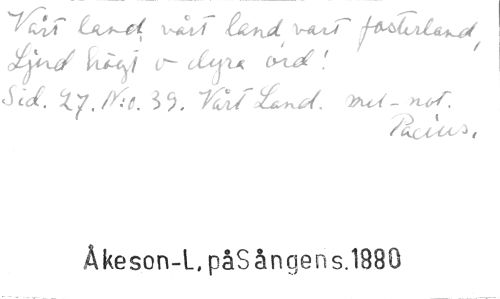 Vårt land, vårt land vårt fosterland,
Ljud högt o dyra ord!
Sid. 27. N:o. 39. Vårt Land. mel-not.
Pacius.
Åkeson-L, påSångens.1880